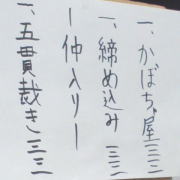 一、かぼちゃ屋 三三
一、締め込み 三三
ー仲入りー
一、五貫裁き 三三